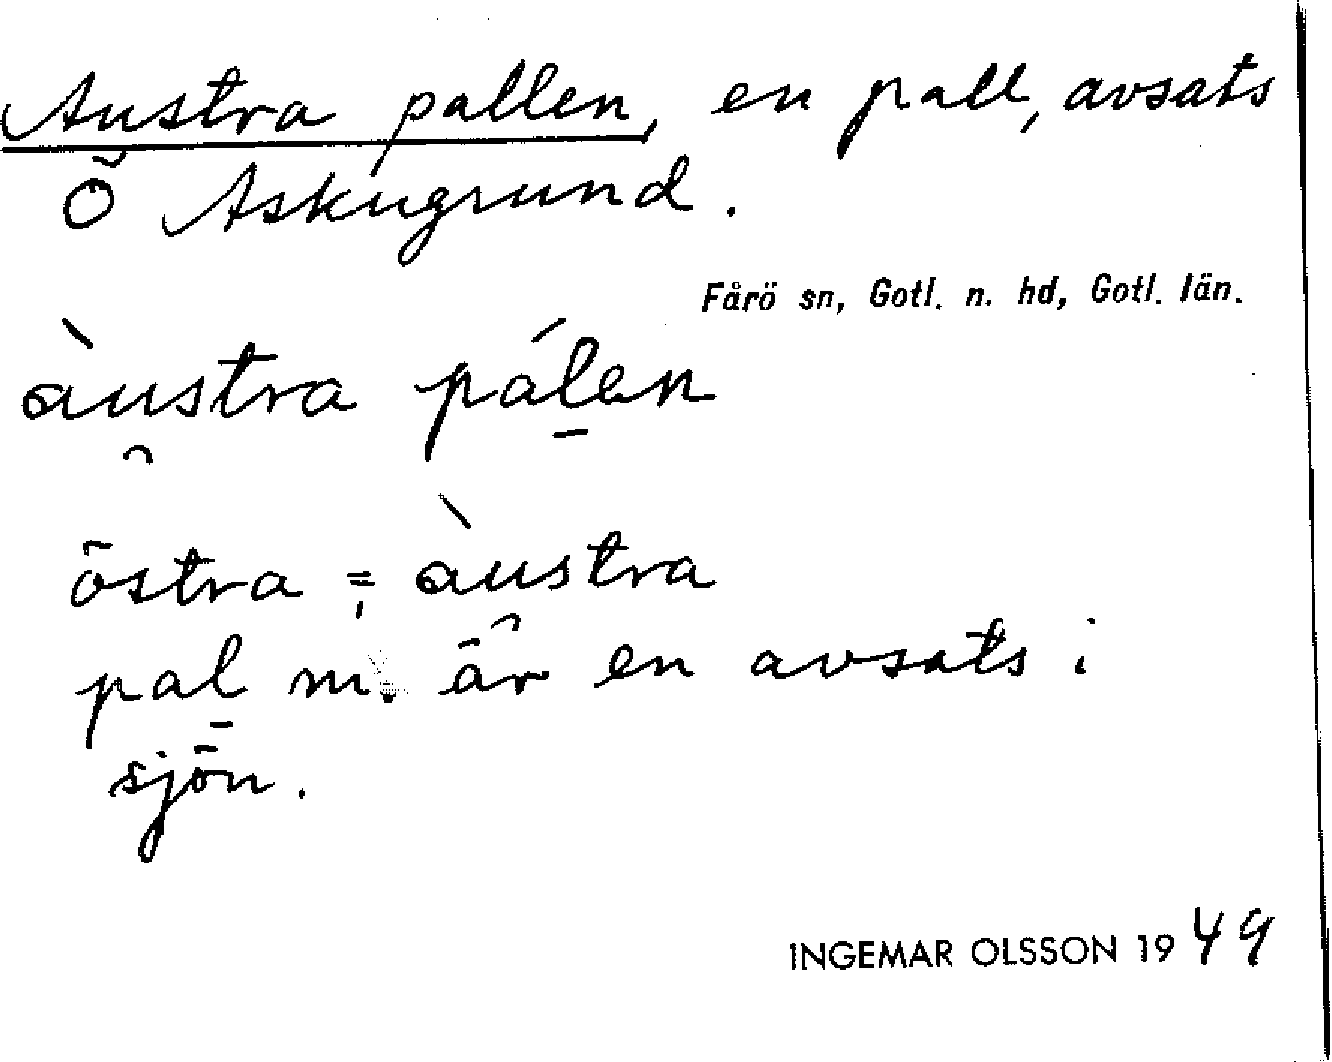 Austra pallen, en pall, avsats
Ö Askugrund.
Fårö sn, Gotl. n. hd, Gotl. län.
àu̯stra pál̠en
östra = àustra
pal̠ m. är en avsats i
sjön.
INGEMAR OLSSON 1949